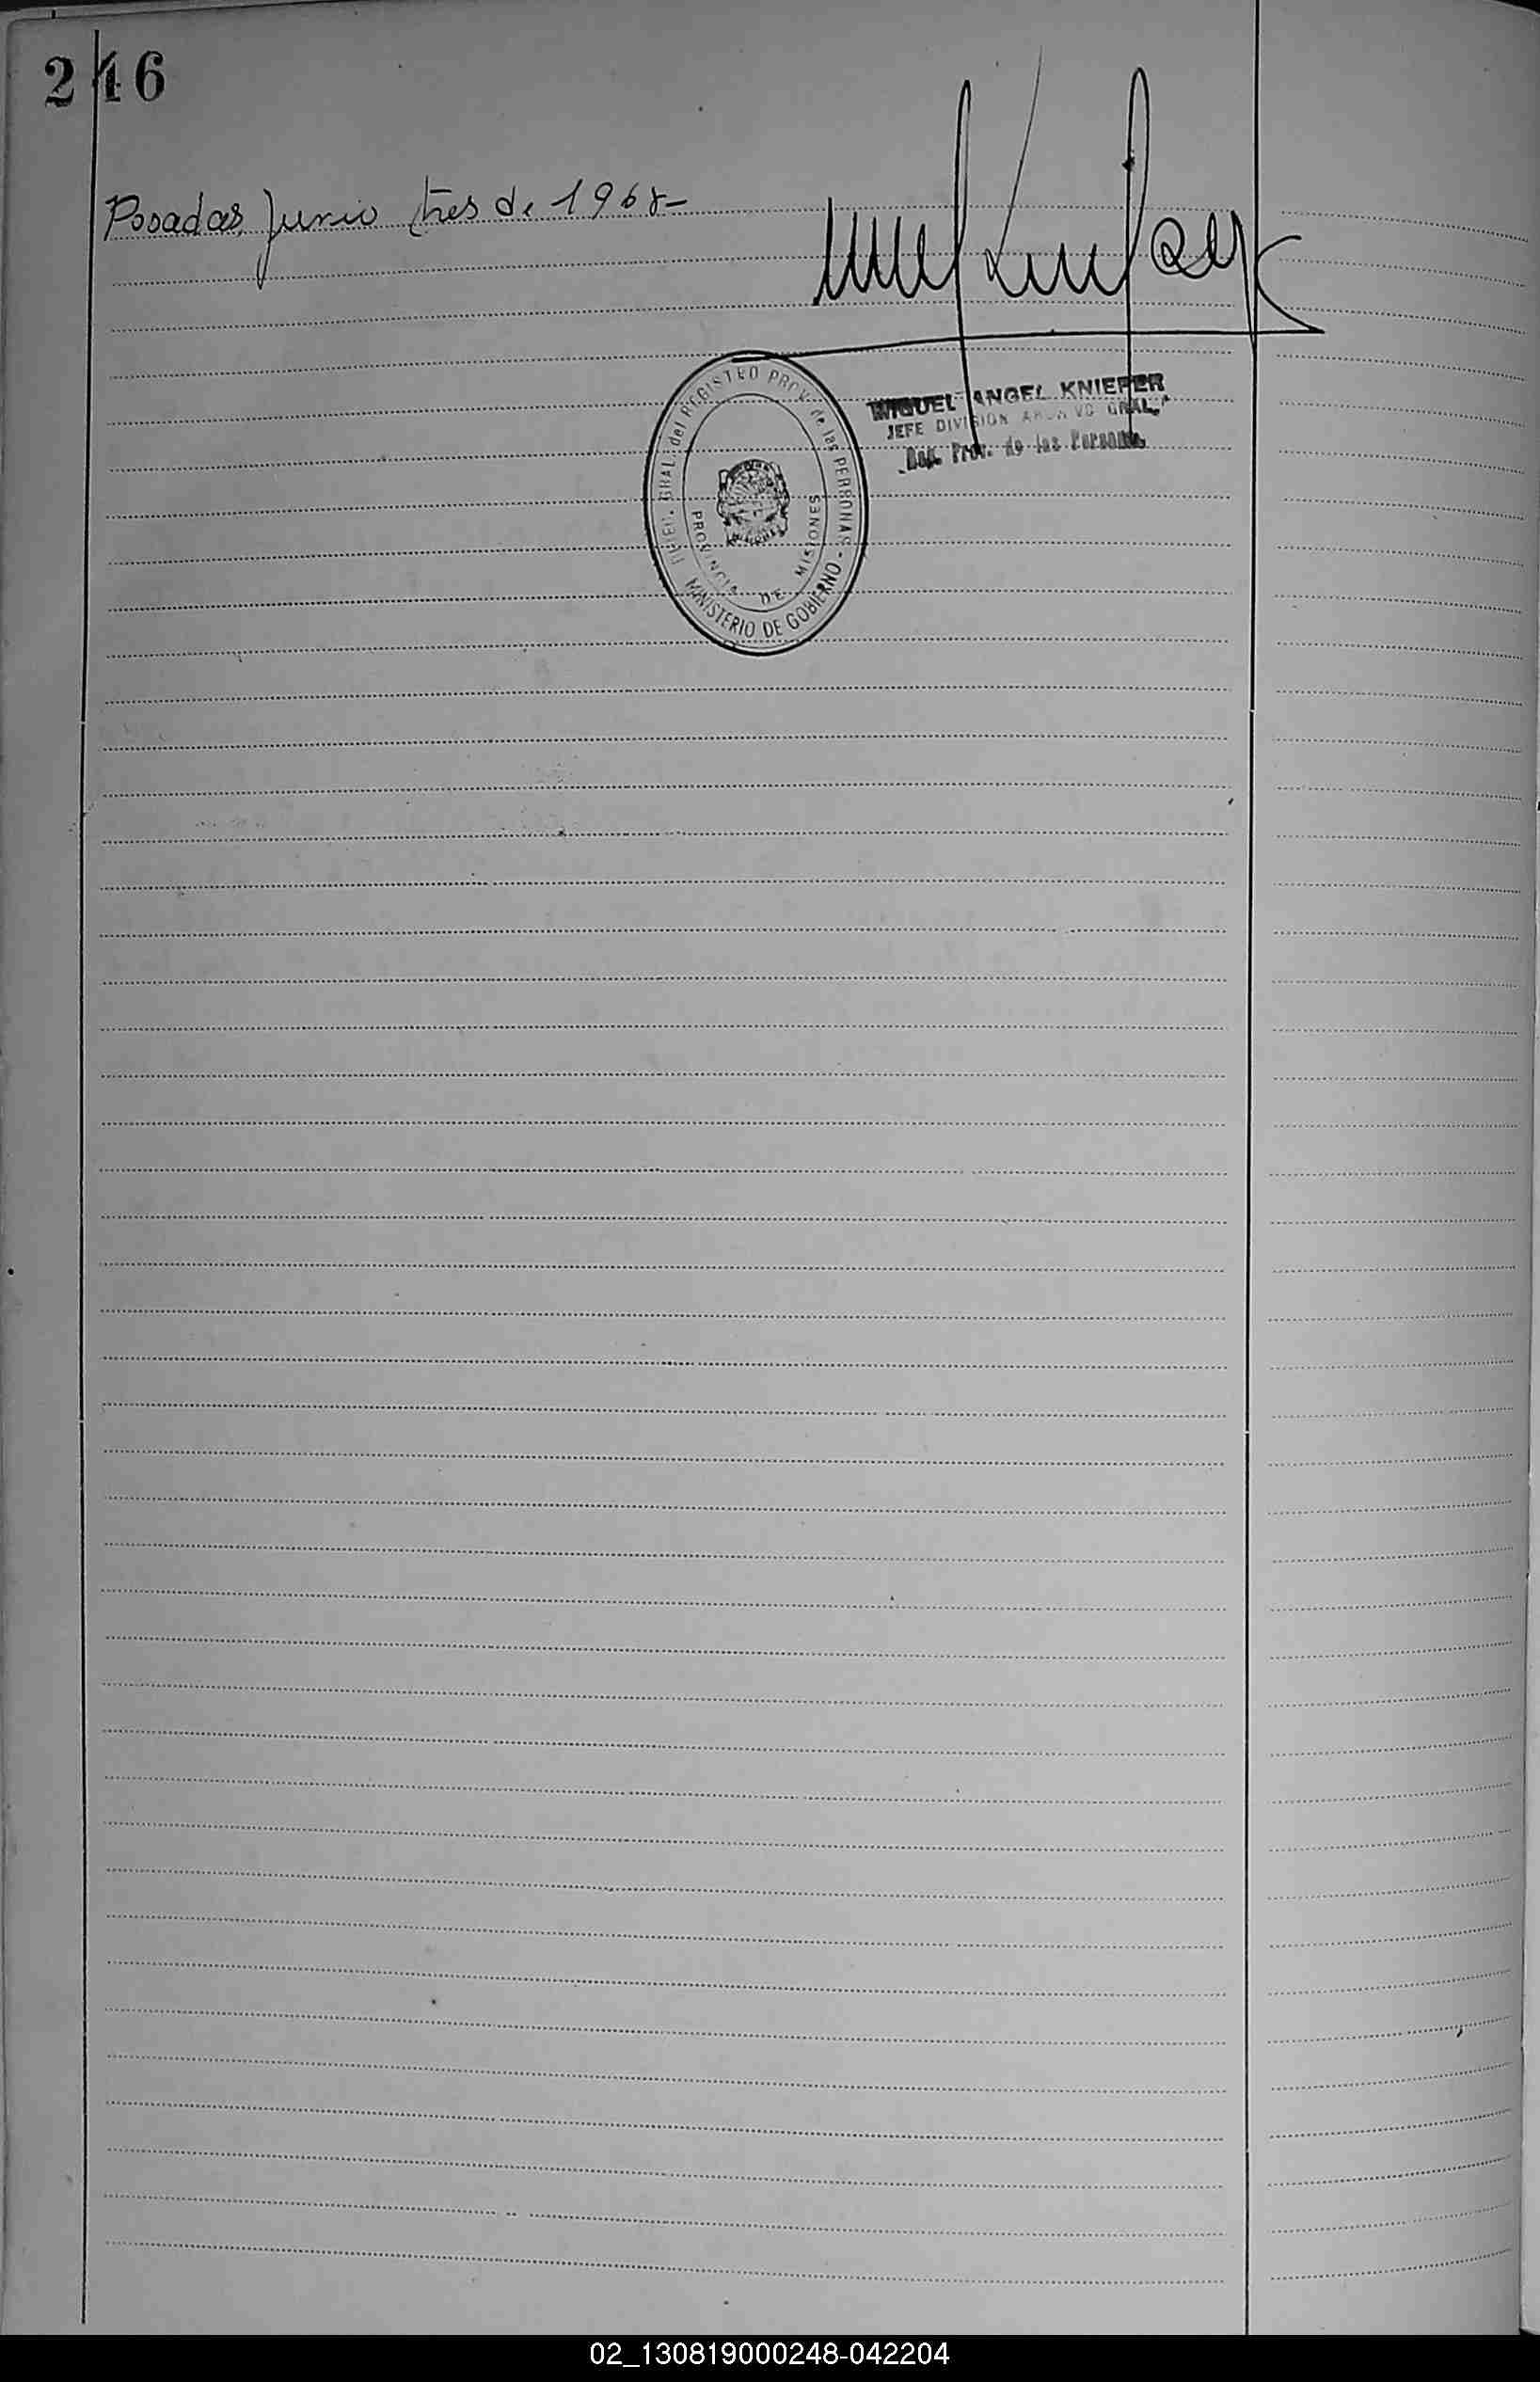 216
Posadas, Junio tres de 1968-
MIGUEL ANGEL KNIEFER
JEFE DIVISION ARCHIVO GRAL.
Reg. Prov. de las Personas
DIREC. GRAL. del REGISTRO PROV. de las PERSONAS -
MINISTERIO DE GOBIERNO -
PROVINCIA DE MISIONES
02_130819000248-042204